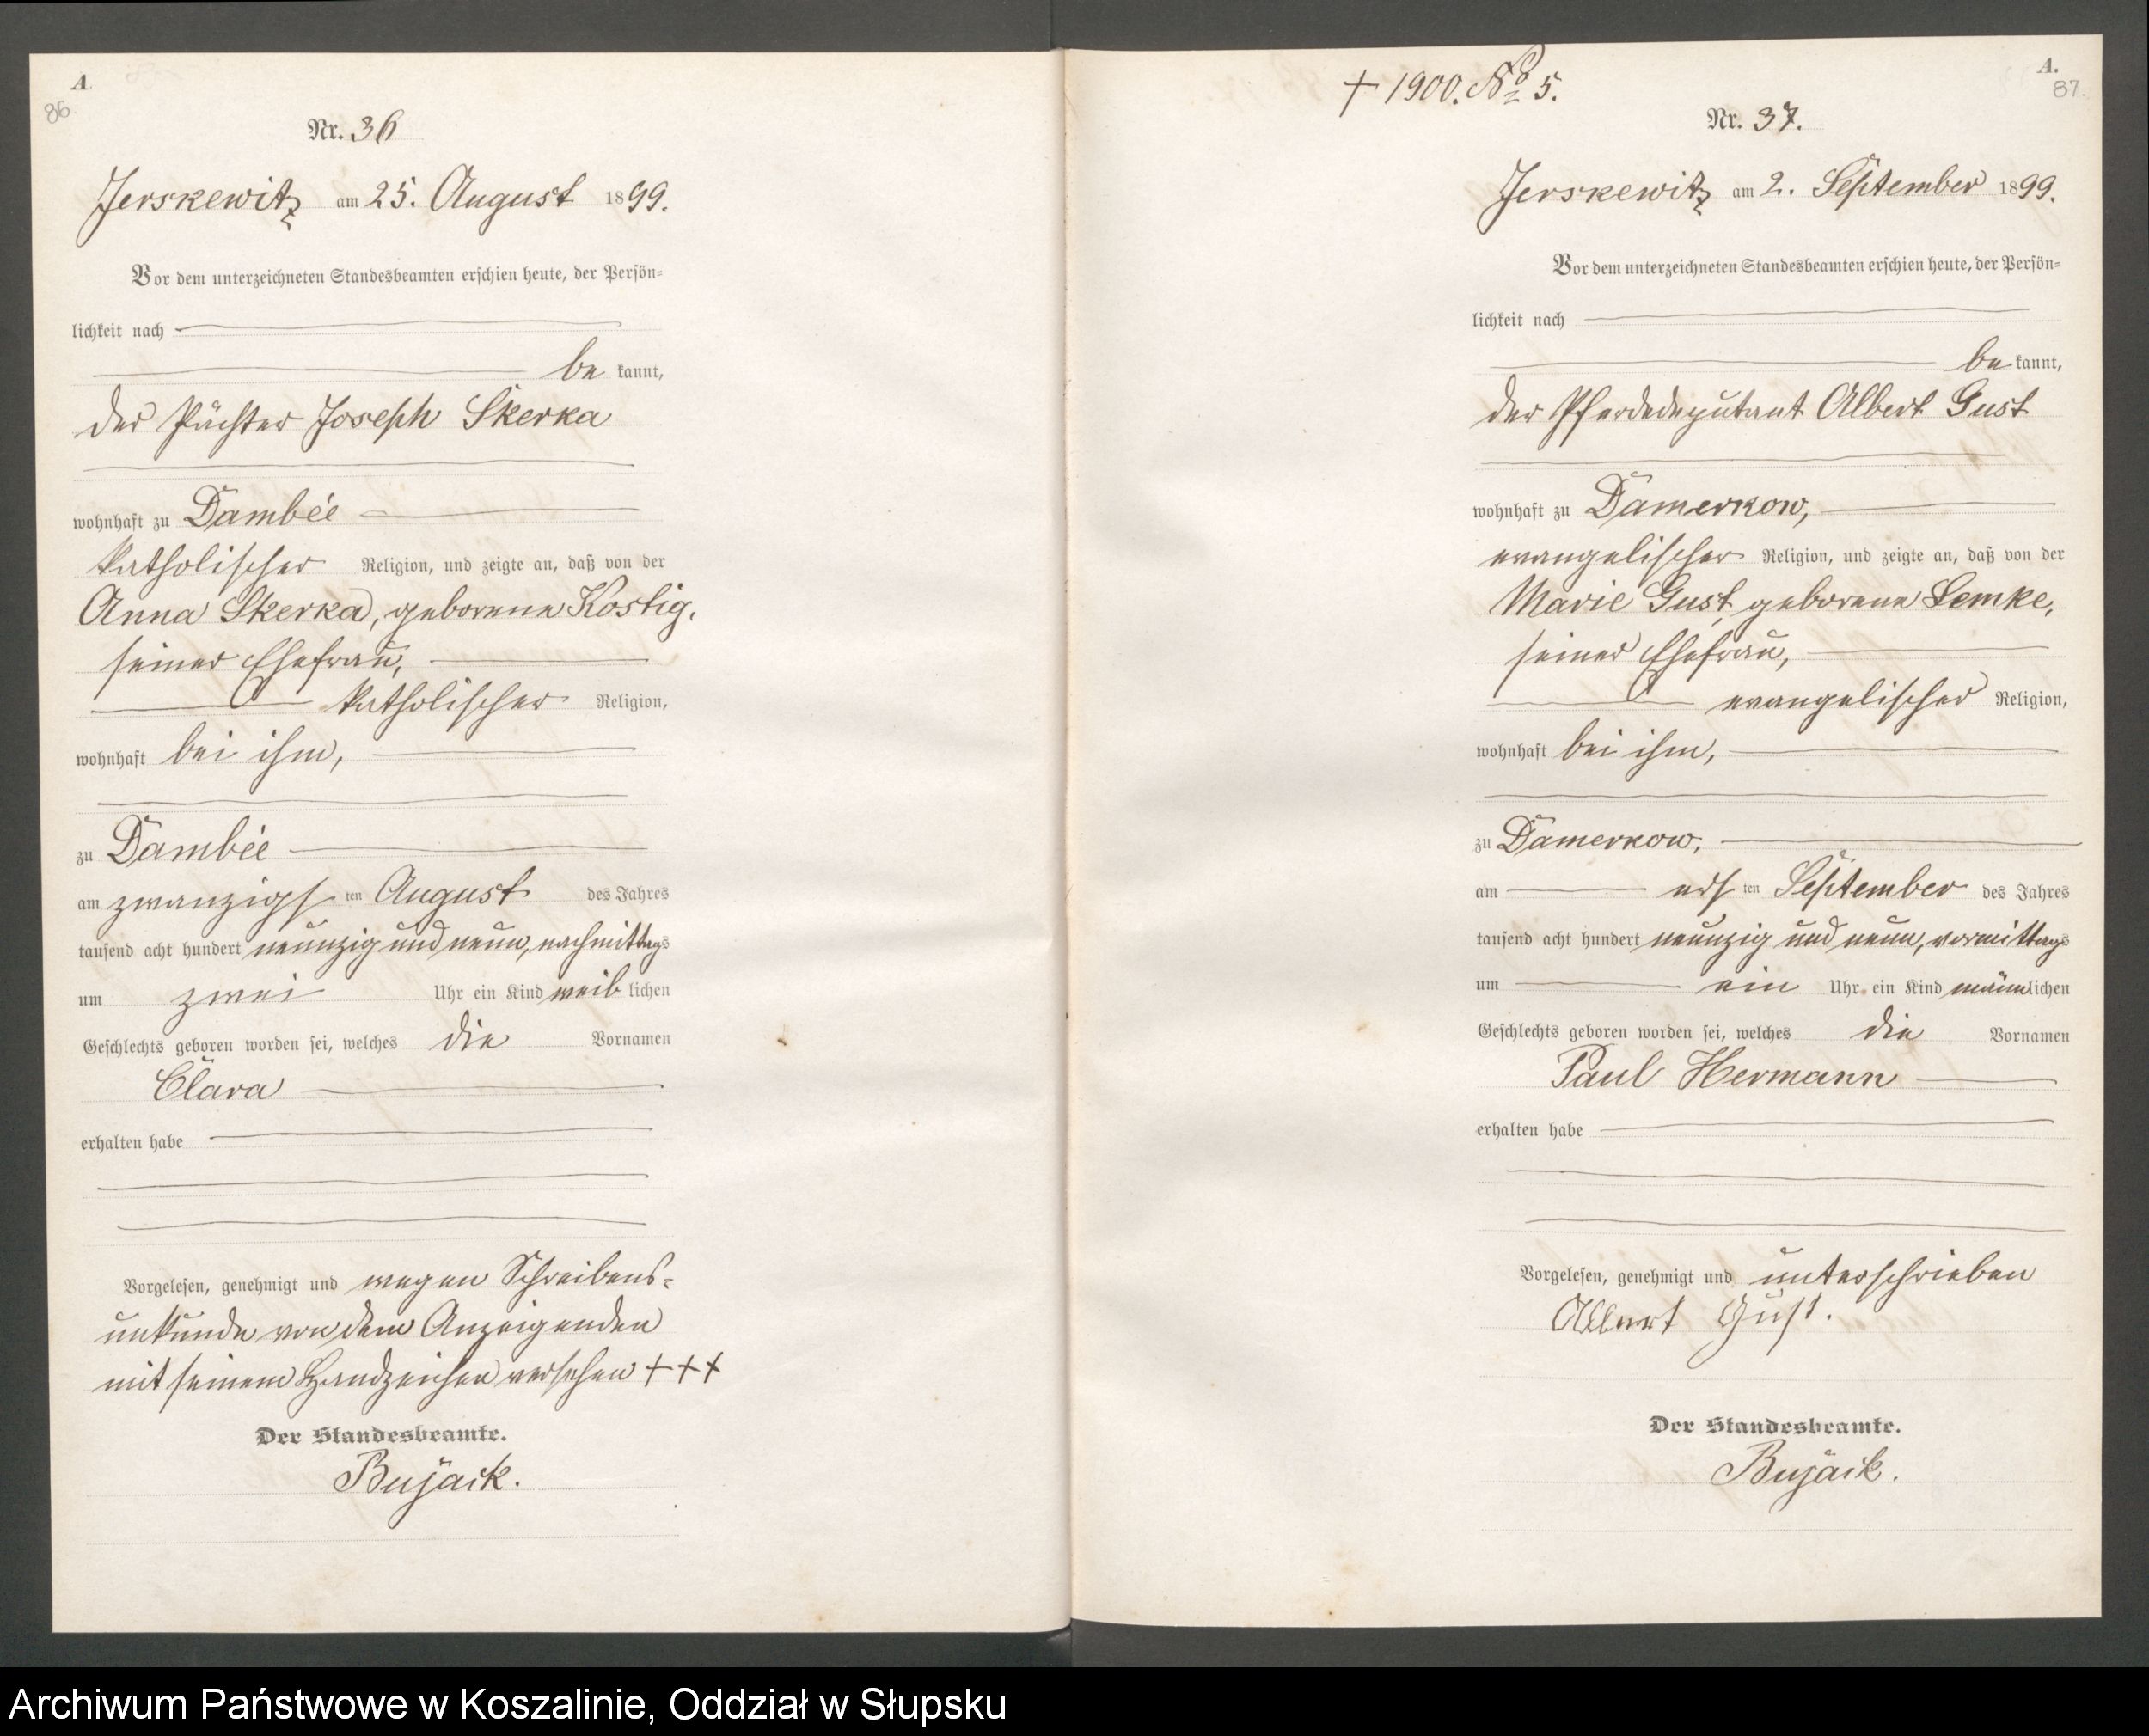 A
86
Nr. 36
Jerskewitz am 25. August 1899.
Vor dem unterzeichneten Standesbeamten erschien heute, der Persön-
lichkeit nach
be kannt,
der Pächter Joseph Skerka
wohnhaft zu Dambée
katholischer Religion, und zeigte an, daß von der
Anna Skerka, geborene Kostig,
seiner Ehefrau,
katholischer Religion,
wohnhaft bei ihm,
zu Dambée
am zwanzigsten August des Jahres
tausend acht hundert neunzig und neun, nachmittags
um zwei Uhr ein Kind weiblichen
Geschlechts geboren worden sei, welches die Vornamen
Clara
erhalten habe
Vorgelesen, genehmigt und wegen Schreibens-
unkunde von dem Anzeigenden
mit seinem Handzeichen versehen +++
Der Standesbeamte.
Bujack.
+ 1900. No 5.
A.
87.
Nr. 37.
Jerskewitz am 2. September 1899.
Vor dem unterzeichneten Standesbeamten erschien heute, der Persön-
lichkeit nach
be kannt,
der Pferdedeputant Albert Gust
wohnhaft zu Damerkow,
evangelischer Religion, und zeigte an, daß von der
Marie Gust, geborene Lemke,
seiner Ehefrau,
evangelischer Religion,
wohnhaft bei ihm,
zu Damerkow,
am ersten September des Jahres
tausend acht hundert neunzig und neun, vormittags
um ein Uhr ein Kind männlichen
Geschlechts geboren worden sei, welches die Vornamen
Paul Hermann
erhalten habe
Vorgelesen, genehmigt und unterschrieben
Albert Gust.
Der Standesbeamte.
Bujack.
Archiwum Państwowe w Koszalinie, Oddział w Słupsku